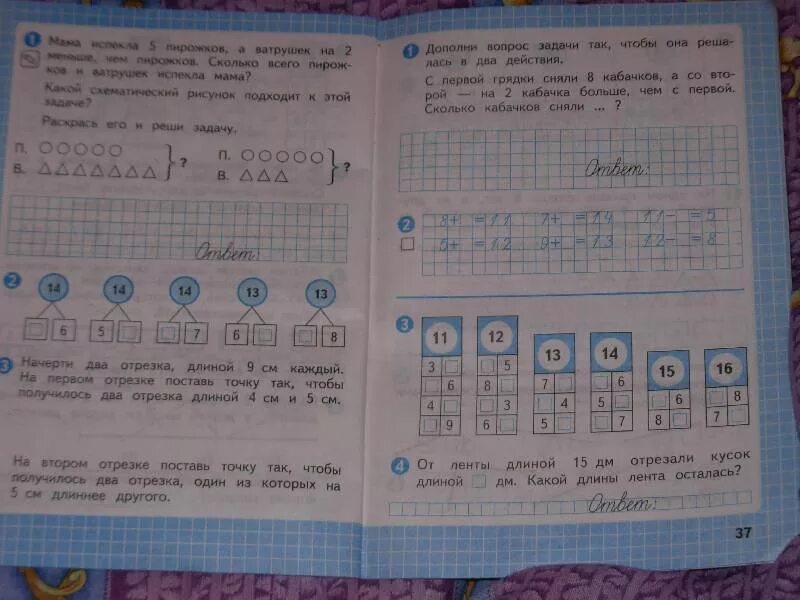 1 Мама испекла 5 пирожков, а ватрушек на 2
меньше, чем пирожков. Сколько всего пирож-
ков и ватрушек испекла мама?
Какой схематический рисунок подходит к этой
задаче?
Раскрась его и реши задачу.
П. ?
В.
П. ?
В.
Ответ:
2 14 14 14 13 13
6 5 7 6 8
3 Начерти два отрезка, длиной 9 см каждый.
На первом отрезке поставь точку так, чтобы
получилось два отрезка длиной 4 см и 5 см.
На втором отрезке поставь точку так, чтобы
получилось два отрезка, один из которых на
5 см длиннее другого.
1 Дополни вопрос задачи так, чтобы она реша-
лась в два действия.
С первой грядки сняли 8 кабачков, а со вто-
рой — на 2 кабачка больше, чем с первой.
Сколько кабачков сняли ... ?
Ответ:
2 8+ =11 7+ =14 11- =5
5+ =12 9+ =13 12- =8
3 11 12 13 14 15 16
3 5 7 6 6 8
6 8 4 5 8 7
4 3 5 7
9 6
4 От ленты длиной 15 дм отрезали кусок
длиной дм. Какой длины лента осталась?
Ответ:
37